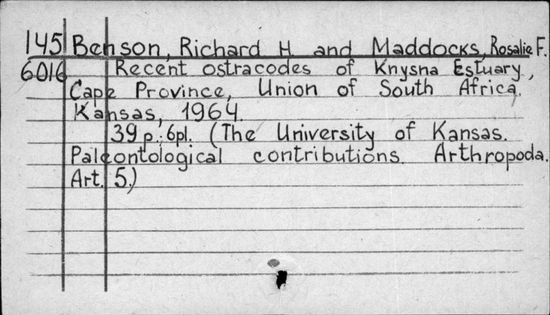 145 Benson, Richard H. and Maddocks, Rosalie F.
6016 Recent ostracodes of Knysna Estuary,
Cape Province, Union of South Africa.
Kansas, 1964.
39 p.; 6pl. (The University of Kansas.
Paleontological contributions. Arthropoda.
Art. 5.)